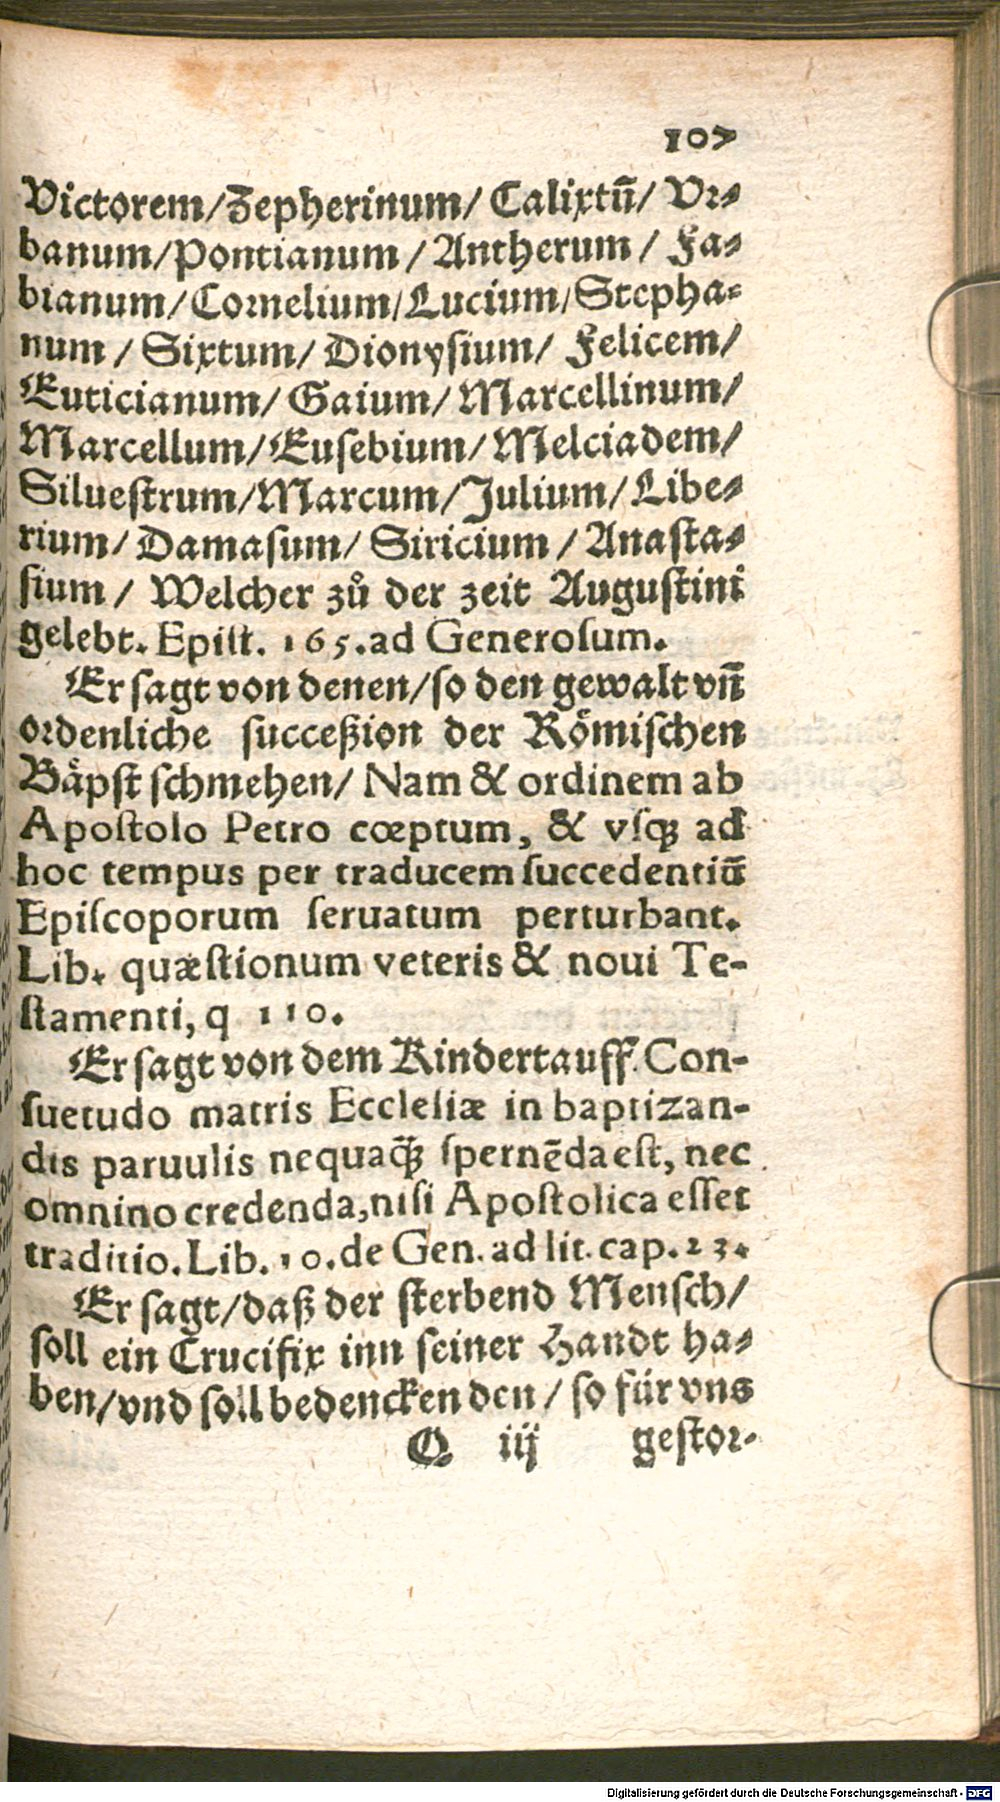 107
Victorem/Zepherinum/ Calixtū/ Vr⸗
banum/Pontianum / Antherum / Fa⸗
bianum/Cornelium/Lucium/Stepha⸗
num / Sixtum/ Dionysium/ Felicem/
Euticianum/ Gaium/ Marcellinum/
Marcellum/Eusebium/ Melciadem/
Silueſtrum/Marcum/Julium/Libe⸗
rium/ Damaſum/ Siricium / Anaſta⸗
ſium / Welcher zů der zeit Auguſtini
gelebt. Epiſt. 165.ad Generoſum.
Er ſagt von denen/ſo den gewalt vñ
ordenliche ſucceßion der Roͤmiſchen
Baͤpſt ſchmehen/ Nam & ordinem ab
Apoſtolo Petro cœptum, & vſqꝫ ad
hoc tempus per traducem ſuccedentiū
Epiſcoporum ſeruatum perturbant.
Lib. quæſtionum veteris & noui Te-
ſtamenti, q 110.
Er ſagt von dem Kindertauff. Con-
ſuetudo matris Eccleſiæ in baptizan-
dis paruulis nequaqꝫ̃ ſpernēda eſt, nec
omnino credenda, niſi Apoſtolica eſſet
traditio. Lib. 10. de Gen. ad lit. cap. 23.
Er ſagt/daß der ſterbend Menſch/
ſoll ein Crucifix inn ſeiner Handt ha⸗
ben/vnd ſoll bedencken den / ſo für vns
Q iij geſtor⸗
Digitalisierung gefördert durch die Deutsche Forschungsgemeinschaft - DFG